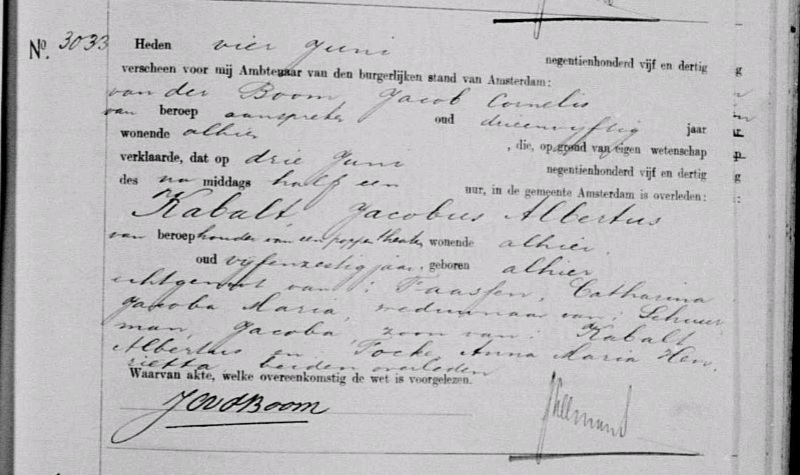 No. 3033 Heden vier Juni negentienhonderd vijf en dertig
verscheen voor mij Ambtenaar van den burgerlijken stand van Amsterdam:
van der Boom Jacob Cornelis
van beroep aanspreker oud drieenvijftig jaar
wonende alhier , die, op grond van eigen wetenschap
verklaarde, dat op drie Juni negentienhonderd vijf en dertig
des na middags half een uur, in de gemeente Amsterdam is overleden:
Kabalt, Jacobus Albertus
van beroep houder van een poppentheater, wonende alhier,
oud vijfenzestig jaar, geboren alhier
echtgenoot van: Faassen, Catharina
Jacoba Maria, weduwnaar van: Schuur
man, Jacoba, zoon van: Kabalt
Albertus en Focke Anna Maria Hen
rietta beiden overleden
Waarvan akte, welke overeenkomstig de wet is voorgelezen.
JCvdBoom